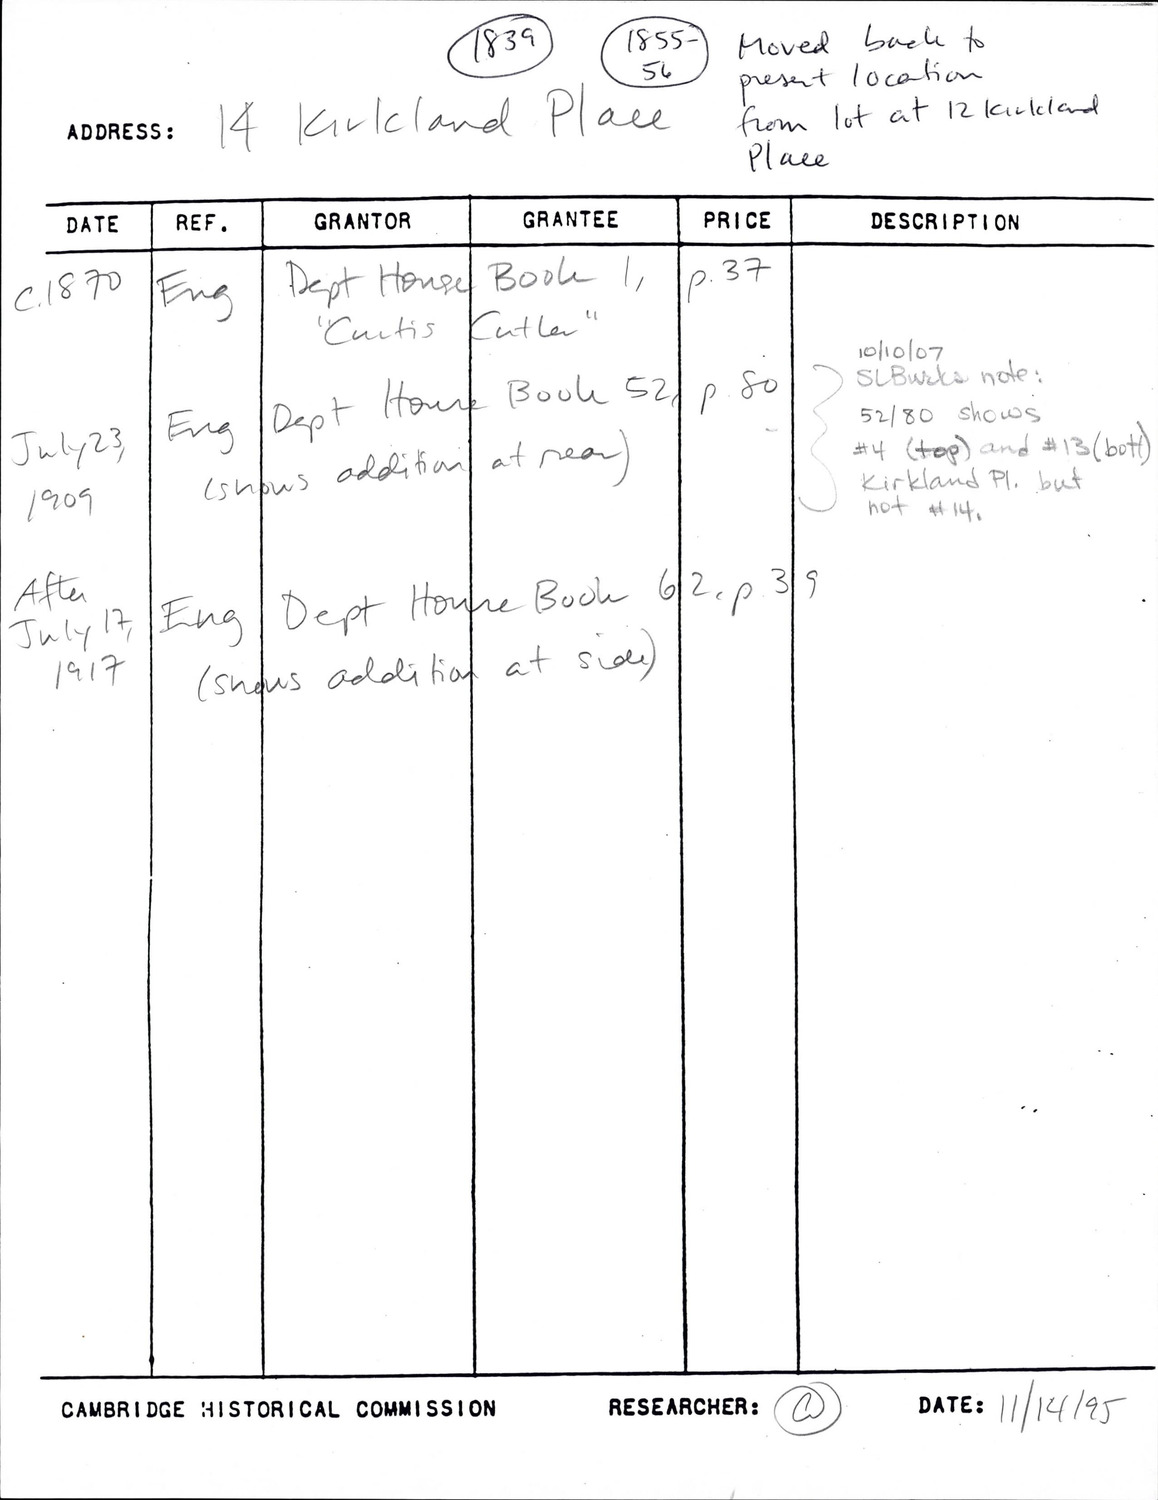 1839
1855-
56
Moved back to
present location
from lot at 12 Kirkland
Place
ADDRESS: 14 Kirkland Place
DATE REF. GRANTOR GRANTEE PRICE DESCRIPTION
c.1870 Eng Dept House Book 1, p.37
"Curtis Cutler"
July 23, 1909 Eng Dept House Book 52, p. 80
(shows addition at rear)
10/10/07
SLBurks note:
52/80 shows
#4 (top) and #13 (bott)
Kirkland Pl. but
not #14.
After
July 17,
1917
Eng Dept House Book 62, p.39
(shows addition at side)
CAMBRIDGE HISTORICAL COMMISSION RESEARCHER: DATE: 11/14/95